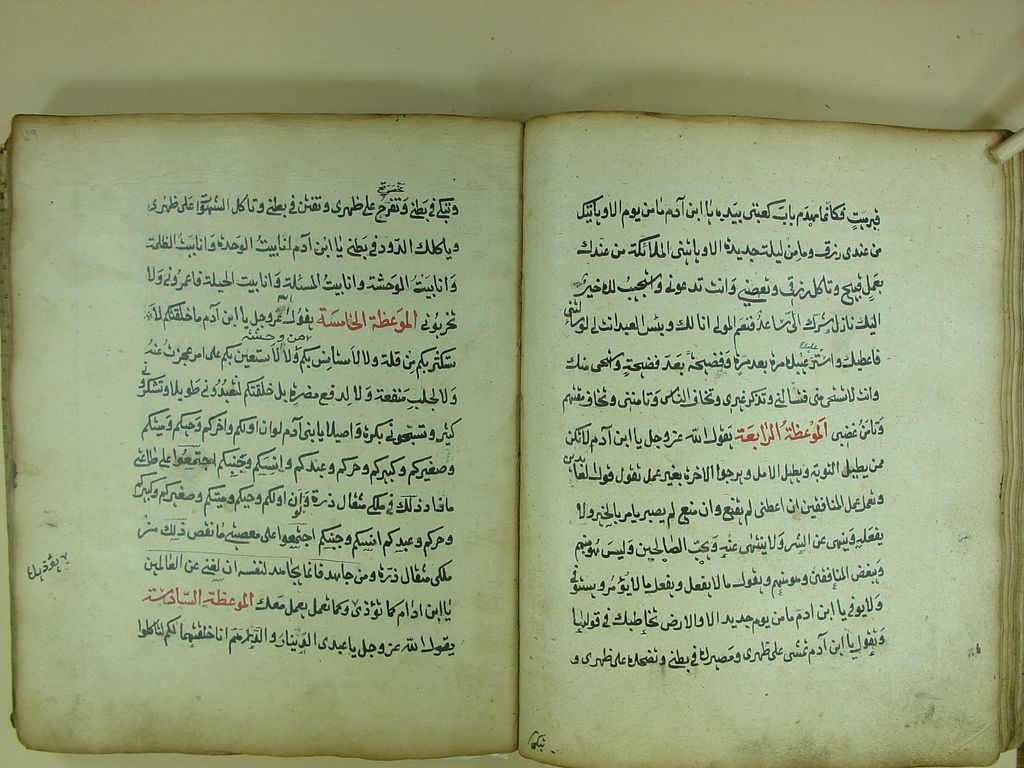 فبرهبت فكانما هدم باب كعبتى بيده يا ابن آدم ما من يوم الا وياتيك
من عندى رزق وما من ليلة جديدة الا وياتينى الملائكة من عندك
بعمل قبيح وتاكل رزقى وتعصينى وانت تدعونى واستجيب لك خيرى
اليك نازل وشرك الىّ صاعد فنعم المولى انا لك وبئس العبد انت لى تسئلنى
فاعطيك واستر عليك مرة بعد مرة وفضيحة بعد فضيحة واستحيى منك
وانت لا تستحيى منى فتسالنى وتذكر غيرى وتخاف الناس وتامننى وتخاف مقتهم
وتامن غضبى الموعظة الرابعة يقول الله عز وجل يا ابن آدم لا تكن
ممن يطيل التوبة ويطيل الامل ويرجوا الاخرة بغير عمل تقول قول العابدين
وتعمل عمل المنافقين ان اعطى لم يقنع وان منع لم يصبر يامر بالخير ولا
يفعله وينهى عن الشر ولا ينتهى عنه ويحب الصالحين وليس منهم
ويبغض المنافقين وهو منهم ويقول ما لا يفعل ويفعل ما لا يؤمر ويستوفى
ولا يوفى يا ابن آدم ما من يوم جديد الا والارض تخاطبك فى قولها
وتقول يا ابن آدم تمشى على ظهرى ومصيرك فى بطنى وتضحك على ظهرى و
تبكى
وتبكى فى بطنى وتفرح على ظهرى وتحزن فى بطنى وتاكل الشهوات على ظهرى
وياكلك الدود فى بطنى يا ابن آدم انا بيت الوحدة وانا بيت الظلمة
وانا بيت الوحشة وانا بيت المسئلة وانا بيت الحية فاعمرونى ولا
تخربونى الموعظة الخامسة يقول الله عز وجل يا ابن آدم ما خلقتكم لا
ستكثر بكم من قلة ولا لاستانس بكم من وحشة ولا لاستعين بكم على امر عجزت عنه
ولا لجلب منفعة ولا لدفع مضرة بل خلقتكم لتعبدونى طويلا وتشكرونى
كثيرا وتسبحونى بكرة واصيلا يا بنى آدم لو ان اولكم واخركم وحيكم وميتكم
وصغيركم وكبيركم وحركم وعبدكم وانسكم وجنيكم اجتمعوا على طاعتى
ما زاد ذلك فى ملكى مثقال ذرة ولو ان اولكم وحيكم وميتكم وصغيركم وكبيركم
وحركم وعبدكم انسيكم وجنيكم اجتمعوا على معصيتى ما نقص ذلك من
ملكى مثقال ذرة ومن جاهد فانما يجاهد لنفسه ان لغنى عن العالمين
يا ابن ادام كما تؤذى وكما تعمل يعمل معك الموعظة السادسة
يقول الله عز وجل يا عبدى الدينار والدرهم انا خلقتهما لكم لتاكلوا